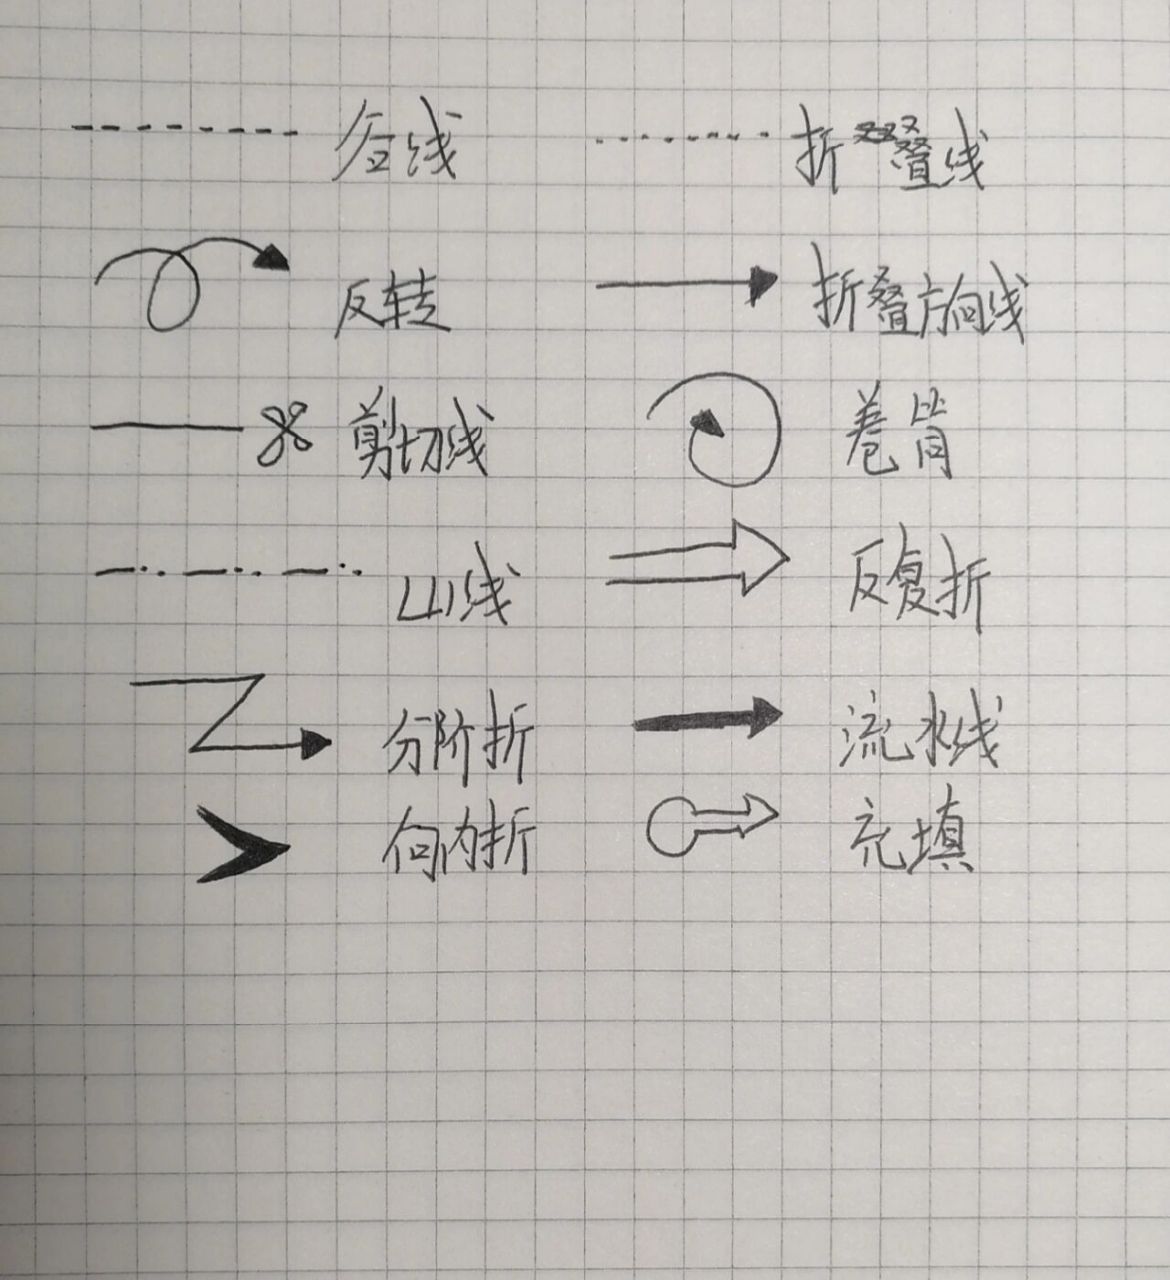 谷线 折叠线
反转 折叠方向线
剪切线 卷筒
山线 反复折
分阶折 流水线
向内折 充填